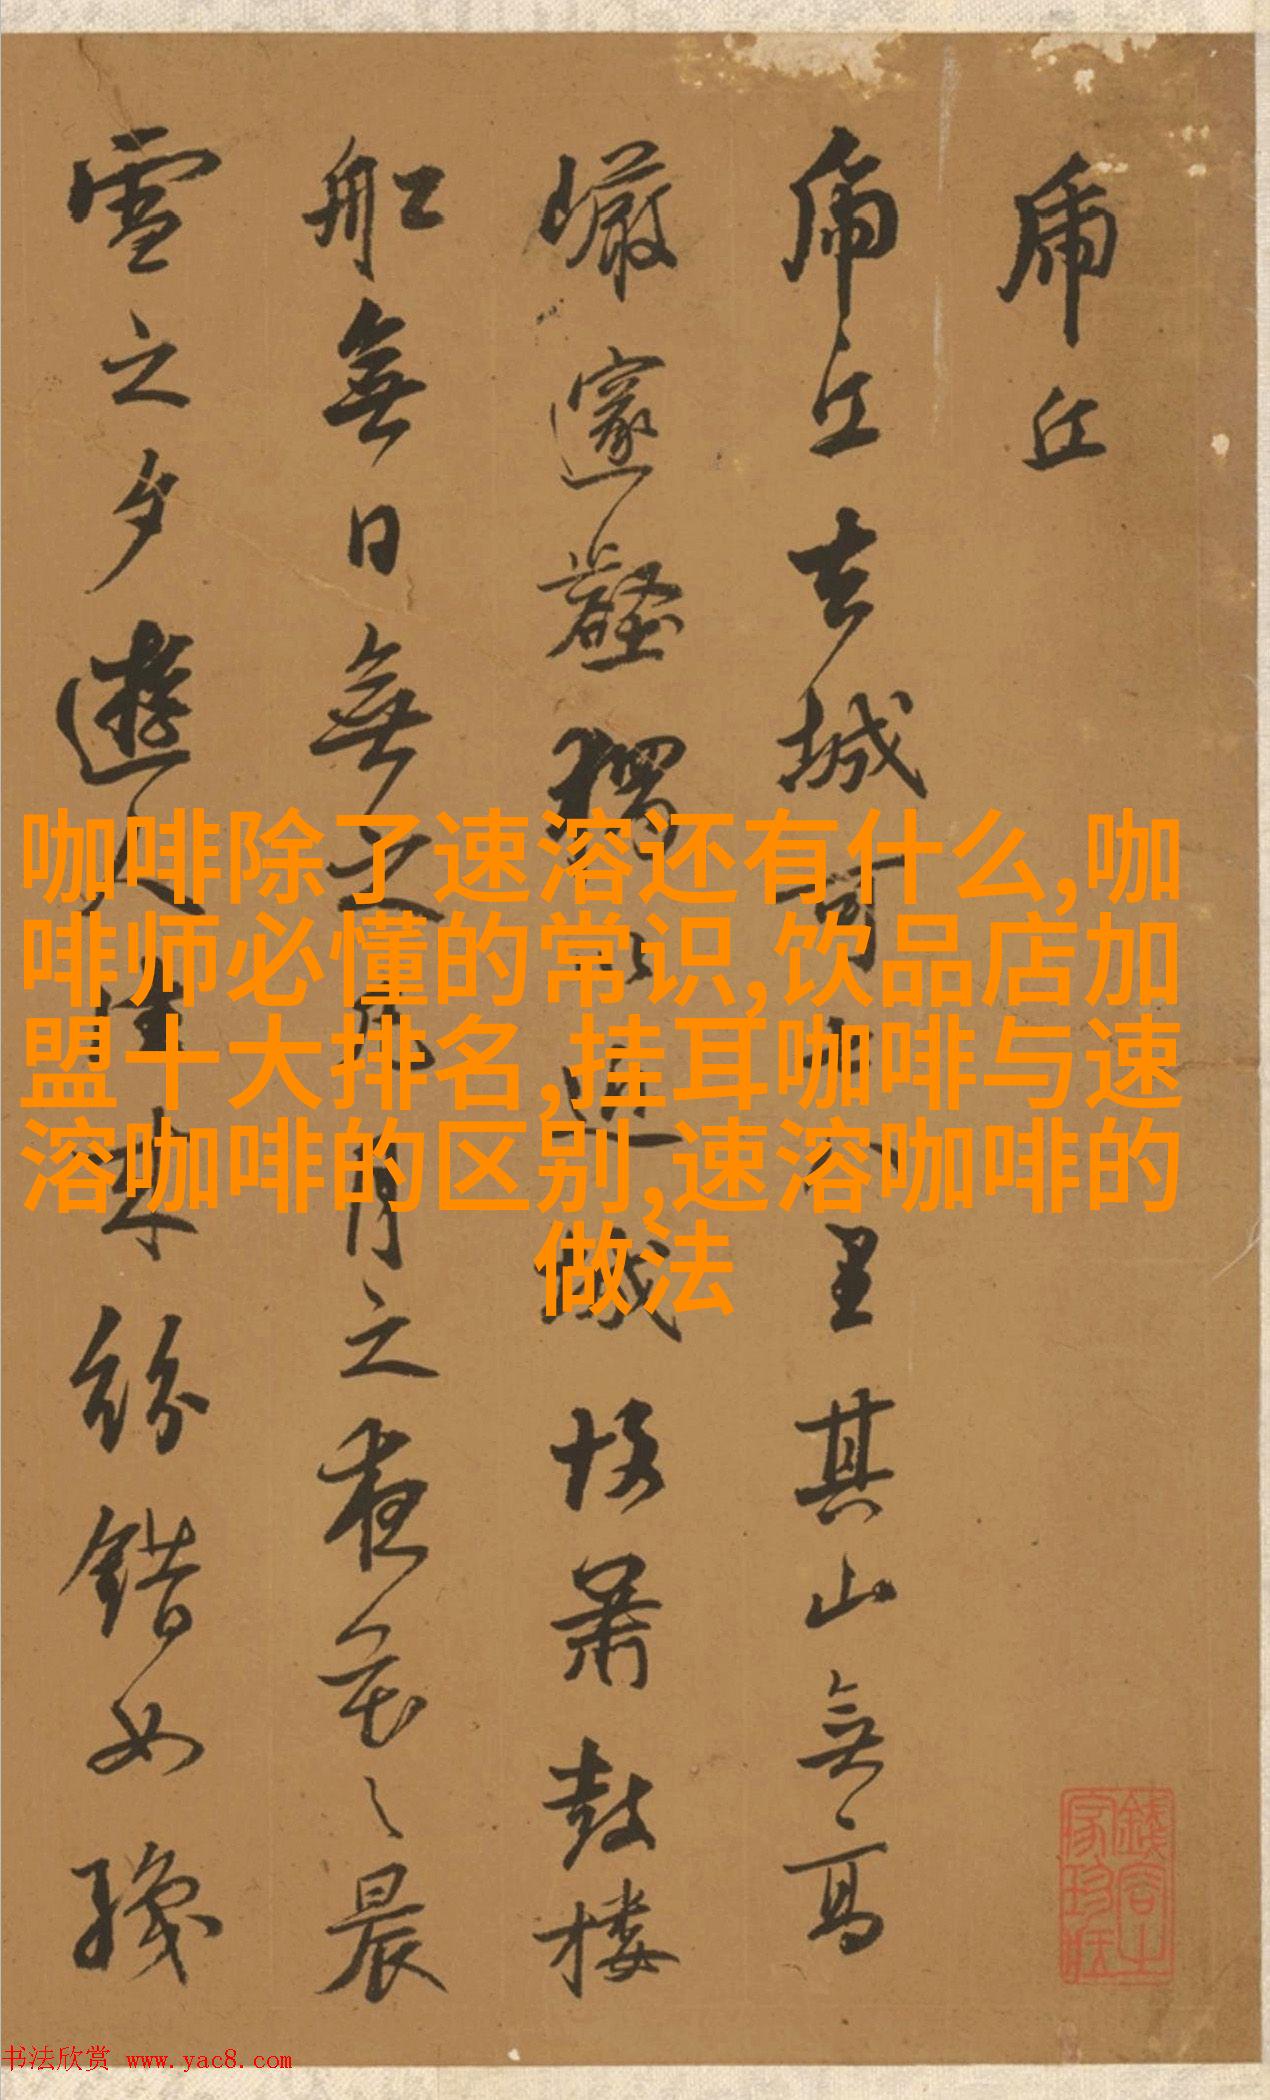 虎丘
虎丘去城可七八里其山無高
巖邃壑獨以近城故簫鼓樓
船無日無之凡月之夜花之晨
雪之夕遊人往來紛錯如織
咖啡除了速溶还有什么,咖
啡师必懂的常识,饮品店加
盟十大排名,挂耳咖啡与速
溶咖啡的区别,速溶咖啡的
做法
书法欣赏 www.yac8.com